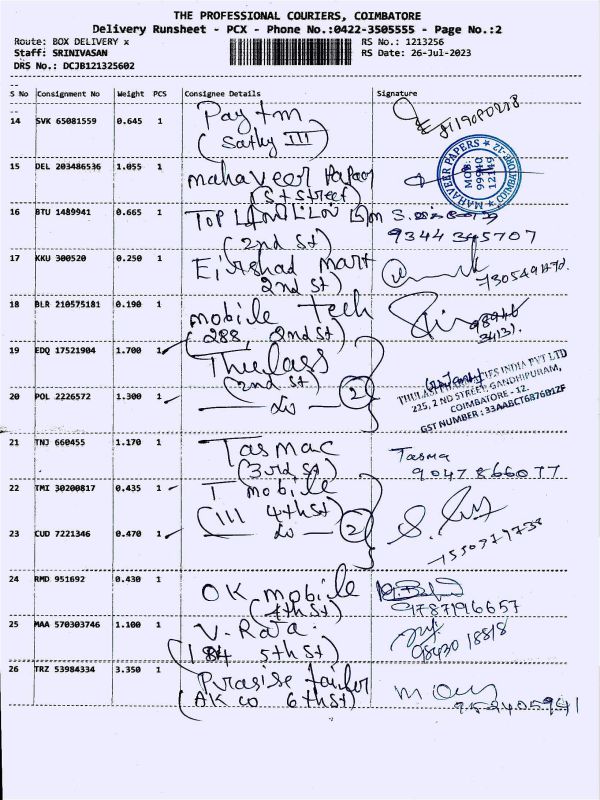 THE PROFESSIONAL COURIERS, COIMBATORE
Delivery Runsheet - PCX - Phone No.:0422-3505555 - Page No.:2
Route: BOX DELIVERY x RS No.: 1213256
Staff: SRINIVASAN RS Date: 26-Jul-2023
DRS No.: DCJB121325602
S No Consignment No Weight PCS Consignee Details Signature
14 SVK 65081559 0.645 1 Paytm
(Sathy III)
15 DEL 203486536 1.055 1 mahaveer Papers
(5th street)
MAHAVEER PAPERS
COIMBATORE-12
MOB:
99940
12149
16 BTU 1489941 0.665 1 TOP
(2nd St) 9344 345707
17 KKU 300520 0.250 1 Eirshad mart
2nd St)
18 BLR 210575181 0.190 1 mobile tech
(288, 2nd St)
19 EDQ 17521904 1.700 1 Thulass
(2nd St)
INDIA PVT LTD
225, 2 ND STREET, GANDHIPURAM,
COIMBATORE - 12.
GST NUMBER : 33AABCT6876D1ZF
20 POL 2226572 1.300 1 — do — 2
21 TNJ 660455 1.170 1 Tasmac Tasma
(3rd St) 90478 66077
22 TMI 30200817 0.435 1 T mobile
(111 4th St)
23 CUD 7221346 0.470 1 — do — 2
24 RMD 951692 0.430 1 OK mobile
(4th St) 9787196657
25 MAA 570303746 1.100 1 V. Raja
(184 5th St) 98430 18818
26 TRZ 53984334 3.350 1 Prasise tailor
(AK co 6th St)